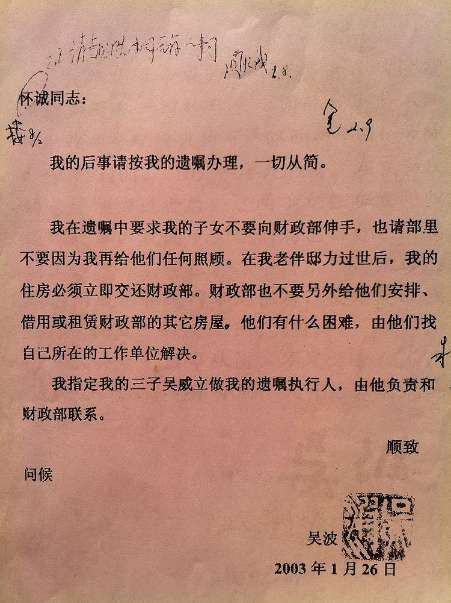 怀诚同志：
金 2.9
我的后事请按我的遗嘱办理，一切从简。
我在遗嘱中要求我的子女不要向财政部伸手，也请部里
不要因为我再给他们任何照顾。在我老伴邸力过世后，我的
住房必须立即交还财政部。财政部也不要另外给他们安排、
借用或租赁财政部的其它房屋。他们有什么困难，由他们找
自己所在的工作单位解决。
我指定我的三子吴威立做我的遗嘱执行人，由他负责和
财政部联系。
顺致
问候
吴波
2003 年 1 月 26 日